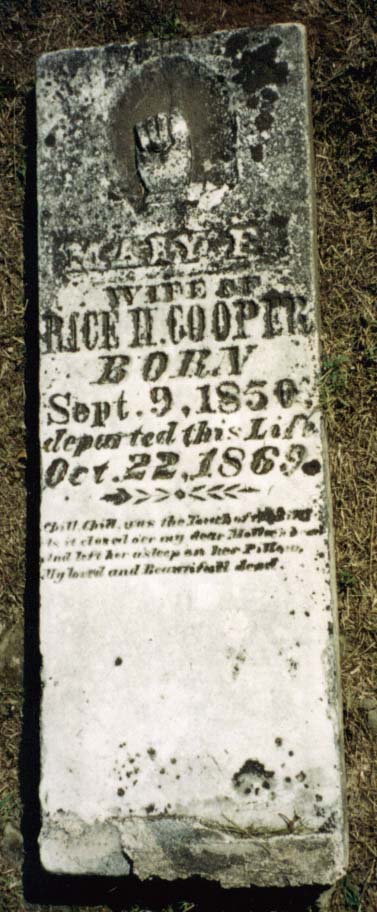 MARY E
WIFE OF
RICE H. COOPER
BORN
Sept. 9, 1850
departed this Life
Oct. 22, 1869.
Chill, Chill, was the Touch of
As it closed oer my dear
And left her asleep on her Pillow,
My loved and Beautifull dead.